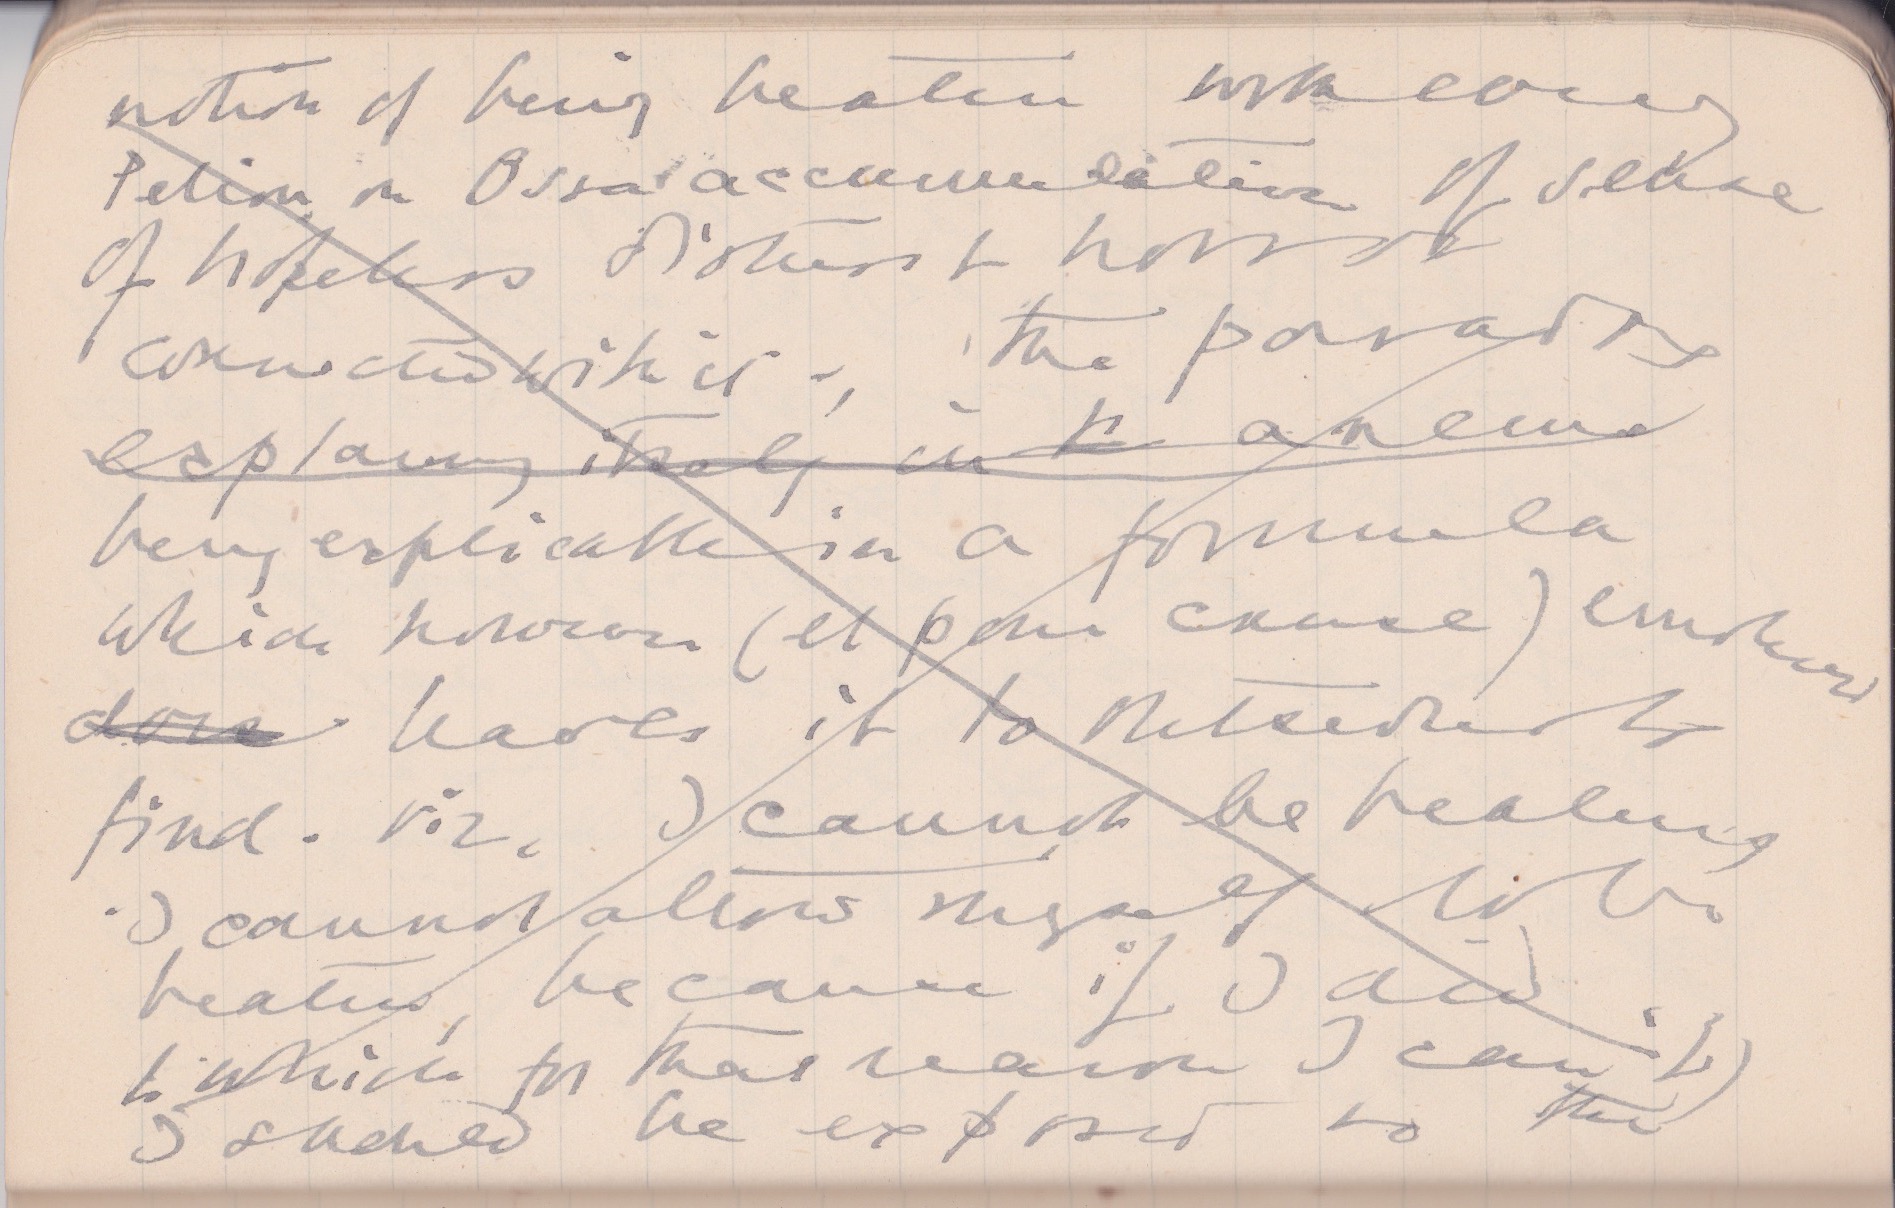 notion of being beaten with every
Pelion on Ossa accumulation of sense
of hopeless distress & horror
connected with it -, the paradox
explaining itself in to a new
being explicable in a formula
which however (et pour cause)
does leaves it to himself to
find. viz, I cannot be beaten
I cannot allow myself to be
beaten, because if I did
(which for that reason I can't)
I should be exposed to the